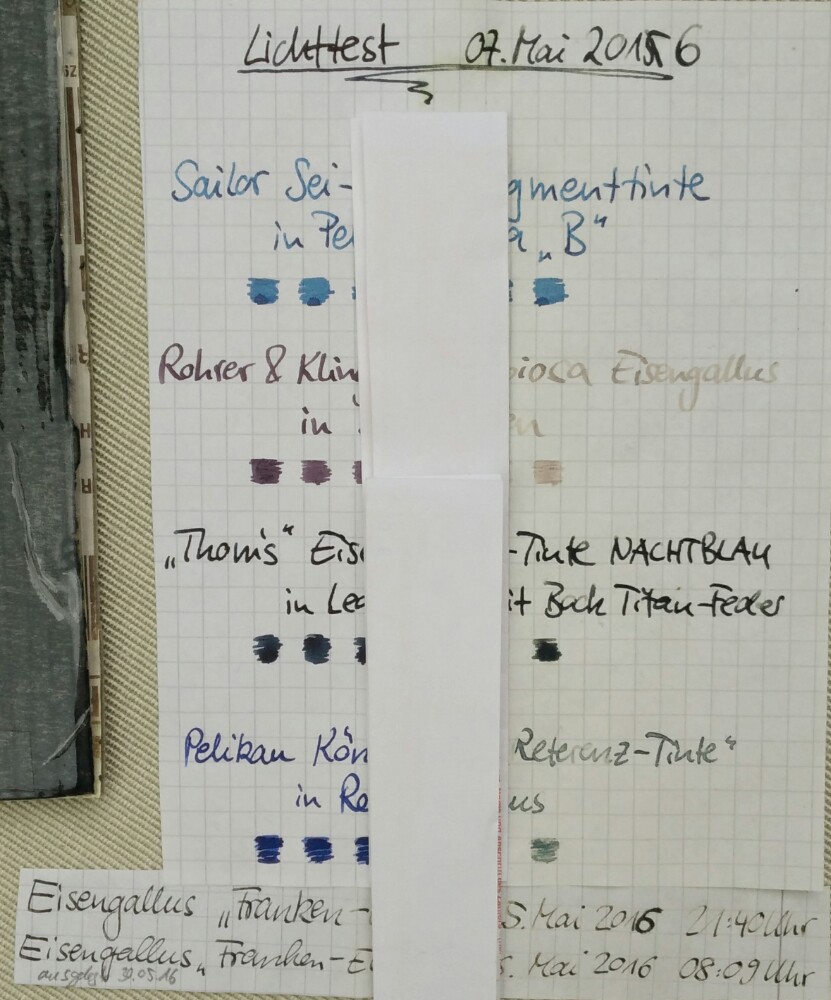 Lichttest 07. Mai 2016
Sailor Sei- gmenttinte
in Pe a „B“
Rohrer & Klin biosa Eisengallus
in en
„Thom's“ Eis -Tinte NACHTBLAU
in Le it Bock Titan-Feder
Pelikan Kön Referenz-Tinte“
in Re us
Eisengallus „Franken- 5. Mai 2016 21:40 Uhr
Eisengallus „Franken-E . Mai 2016 08:09 Uhr
30.05.16